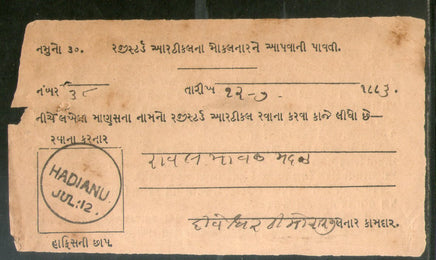 નમુનો ૩૦. રજીસ્ટર્ડ આરટીકલના મોકલનારને આપવાની પાવતી.
નંબર ૩૮ તારીખ ૧૨-૭ ૧૮૯૩.
નીચે લખેલા માણસના નામનો રજીસ્ટર્ડ આરટીકલ રવાના કરવા કાજે લીધો છે—
રવાના કરનાર
રાવલ માવજી
HADIANU
JUL:12.
લનાર કામદાર.
હાફિસની છાપ